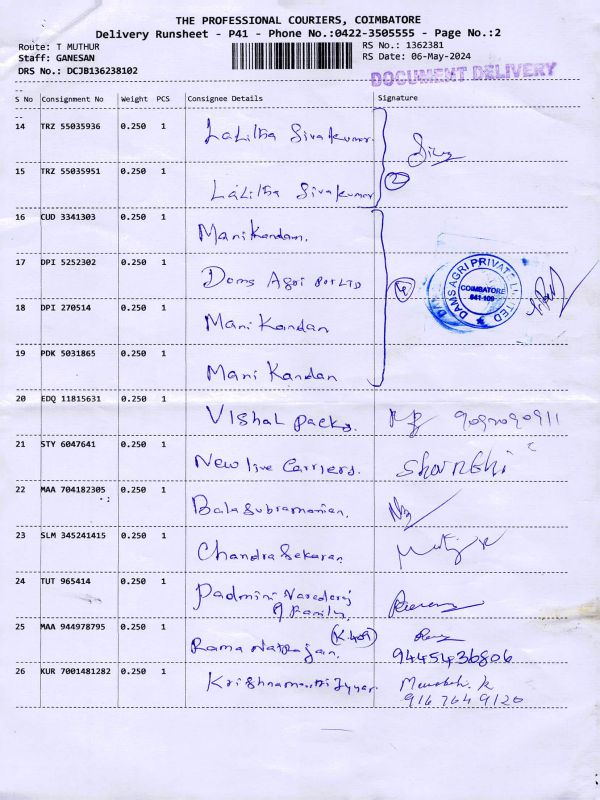 THE PROFESSIONAL COURIERS, COIMBATORE
Delivery Runsheet - P41 - Phone No.:0422-3505555 - Page No.:2
Route: T MUTHUR
RS No.: 1362381
Staff: GANESAN
RS Date: 06-May-2024
DRS No.: DCJB136238102
DOCUMENT DELIVERY
S No Consignment No Weight PCS Consignee Details Signature
14 TRZ 55035936 0.250 1 Lalitha Sivakumar
15 TRZ 55035951 0.250 1 Lalitha Sivakumar 2
16 CUD 3341303 0.250 1 Manikandan.
17 DPI 5252302 0.250 1 Doms Agri Pvt LTD 4
DAMS AGRI PRIVATE LIMITED
COIMBATORE
641-109
18 DPI 270514 0.250 1 Mani Kandan
19 PDK 5031865 0.250 1 Mani Kandan
20 EDQ 11815631 0.250 1 Vishal packs.
21 STY 6047641 0.250 1 New live Carriers.
22 MAA 704182305 0.250 1 Balasubramanian.
23 SLM 345241415 0.250 1 Chandra Sekaran.
24 TUT 965414 0.250 1 Padmini
25 MAA 944978795 0.250 1 Rama Natrajan. (K.409) 9445436806
26 KUR 7001481282 0.250 1 9167649120